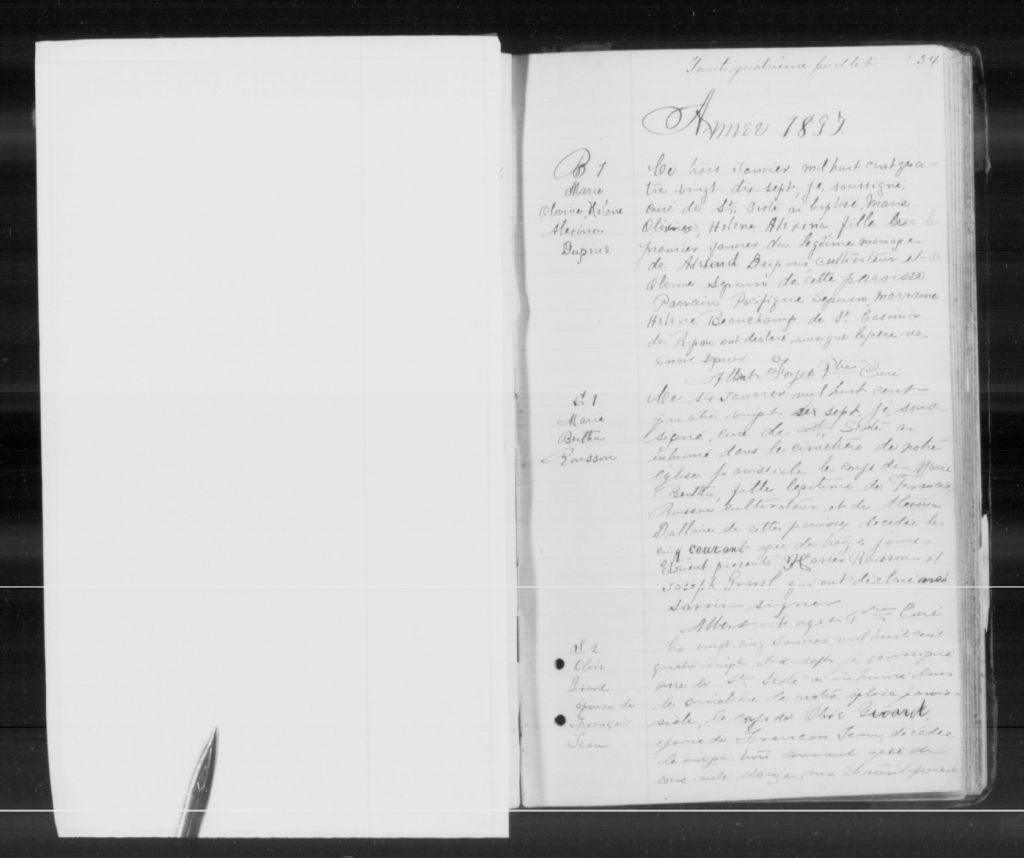 Trente quatrième feuillet 34
Année 1897.
B 1
Marie
Olivine, Hélène
Alexina
Dupuis
Le trois Janvier mil huit cent qua-
tre vingt dix sept, je, soussigné,
curé de St. Sixte ai baptisé, Marie
Olivine, Hélène Alexina fille née le
premier janvier du légitime mariage
de Dupuis cultivateur et de
de cette paroisse
Parrain Pacifique marraine
Hélène Beauchamp de St. Casimir
de Ripon ont déclaré, ainsi que le père ne
savoir signer
Albert Ptre Curé
S 1
Marie
Bertha
Rousson
Le six Janvier mil huit cent
quatre vingt dix sept, je sous
signé, curé de St. Sixte ai
inhumé dans le cimetière de notre
église paroissiale le corps de Marie
Bertha, fille légitime de Francis
Rousson cultivateur et de Alexina
Dallaire de cette paroisse décédée le
cinq courant agée de jours
Etaient présents Rousson et
Joseph Gravel qui ont déclaré
savoir signer
Albert Ptre Curé
S. 2
Olive
Girard
épouse de
François
Jean
Le vingt cinq Janvier mil huit cent
quatre vingt dix sept, je soussigné
curé de St. Sixte ai inhumé dans
le cimetière de notre église parois-
siale, le corps de Olive Girard,
épouse de François Jean, décédée
le vingt trois courant agée de
Etaient présents